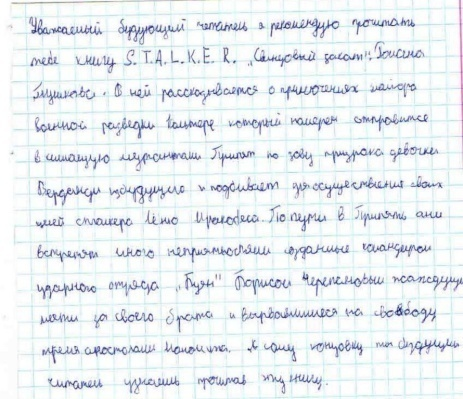 Уважаемый будующий читатель я рекомендую прочитать
тебе книгу S.T.A.L.K.E.R. „Свинцовый закат":
В ней рассказывается о приключениях майора
военной разведки который намерен отправится
в кишащую мутантами Припят по зову призрака девочки
и подбивает для осуществления своих
сталкера Лёню Мракобеса. По пути в Припять они
встретят много неприятностями созданные командиром
ударного отряда „Буян" Борисом Черепановым жаждущим
мести за своего брата и вырвавшиеся на свободу
тремя апостолами монолита. А саму концовку ты будущий
читатель узнаешь прочтав эту книгу.